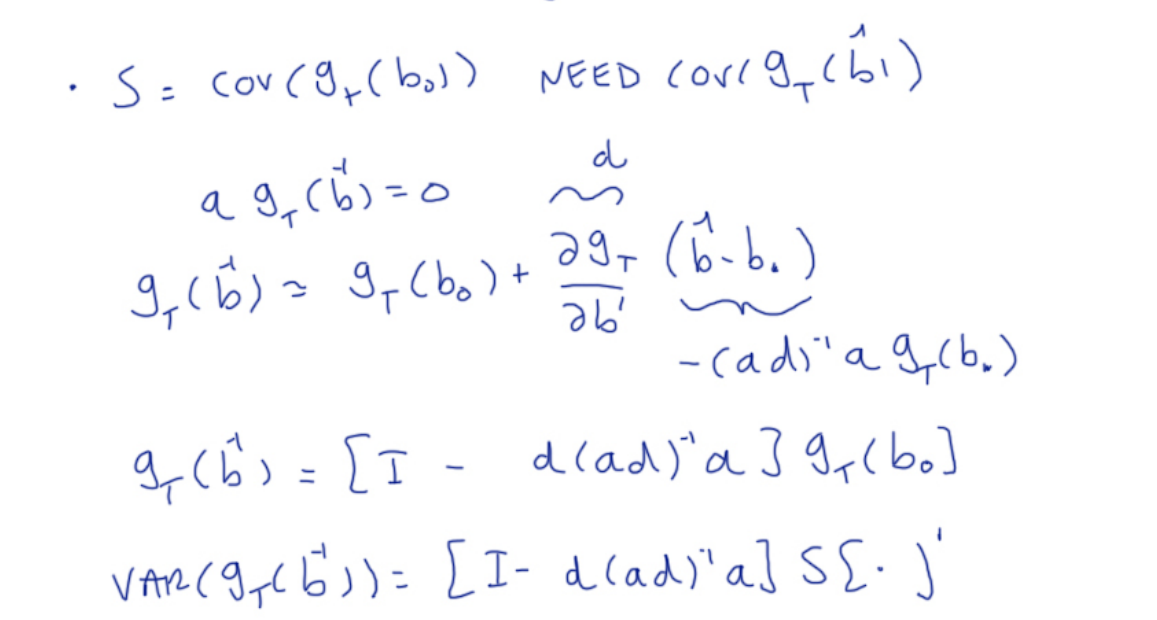 · S = cov(g_T(b₀)) NEED cov(g_T(b̂))
d
a g_T(b̂) = 0
g_T(b̂) ≈ g_T(b₀) + ∂g_T/∂b' (b̂ - b₀)
-(ad)⁻¹ a g_T(b₀)
g_T(b̂) = [I - d(ad)⁻¹a] g_T(b₀]
VAR(g_T(b̂)) = [I - d(ad)⁻¹a] S[·]'